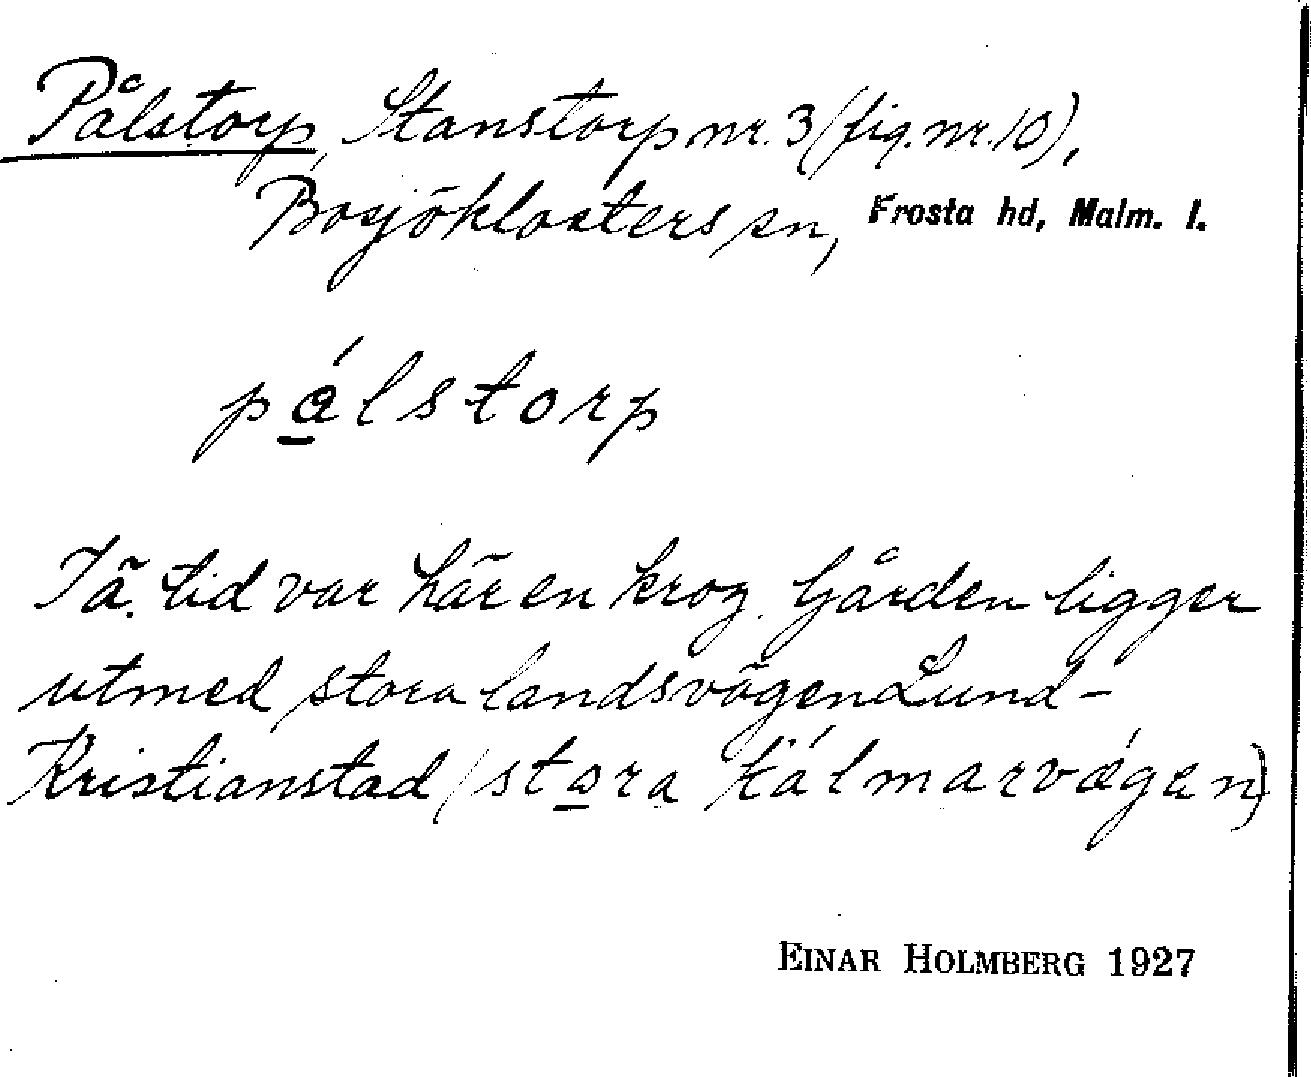 Pålstorp, Stanstorp nr. 3 (fig. nr. 10),
Bosjöklosters sn, Frosta hd, Malm. l.
pǻ̱lstorp
I ä. tid var här en krog. Gården ligger
utmed stora landsvägen Lund-
Kristianstad (sto̱ra kálmarvǽgen)
EINAR HOLMBERG 1927